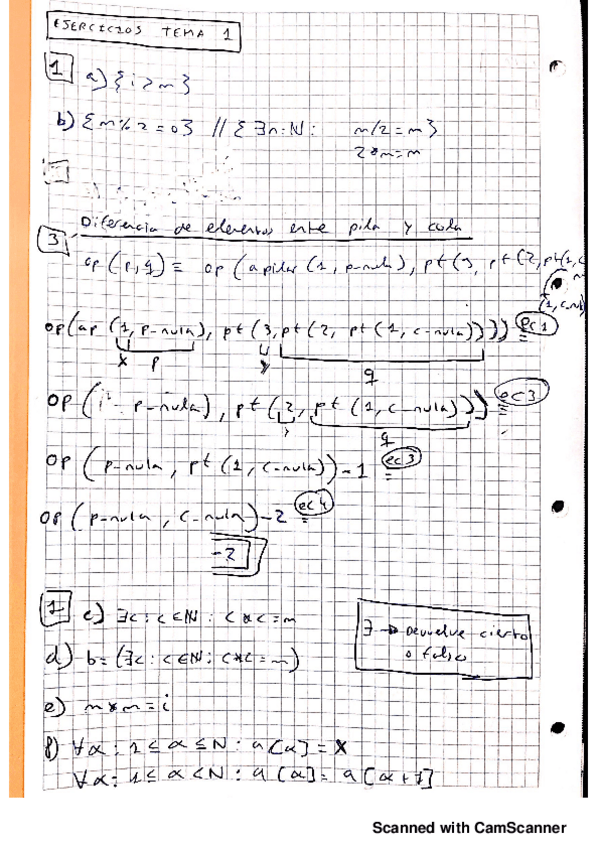 EJERCICIOS TEMA 1
1 a) { i > m }
b) { m % 2 = 0 } // { ∃n: N : m/2 = m }
2*m = m
Diferencia de elementos entre pila y cola
3
op (p, q) ≡ op (apilar (1, p-nula), pt (3, pt (2, pt (1, c
(1, c-nula)
op (ap (1, p-nula), pt (3, pt (2, pt (1, c-nula)))) ec 1
x p y q
p-nula), pt (2, pt (1, c-nula)) ec 3
q
op (p-nula, pt (1, c-nula)) - 1 ec 3
op (p-nula, c-nula) - 2 ec 4
- 2
1 c) ∃c : c ∈ N : c * c = m
∃ → Devuelve cierto
o falso
d) b = (∃c : c ∈ N : c * c = m)
e) m * m = i
f) ∀α : 1 ≤ α ≤ N : a[α] = x
∀α : 1 ≤ α < N : a[α] = a[α+1]
Scanned with CamScanner